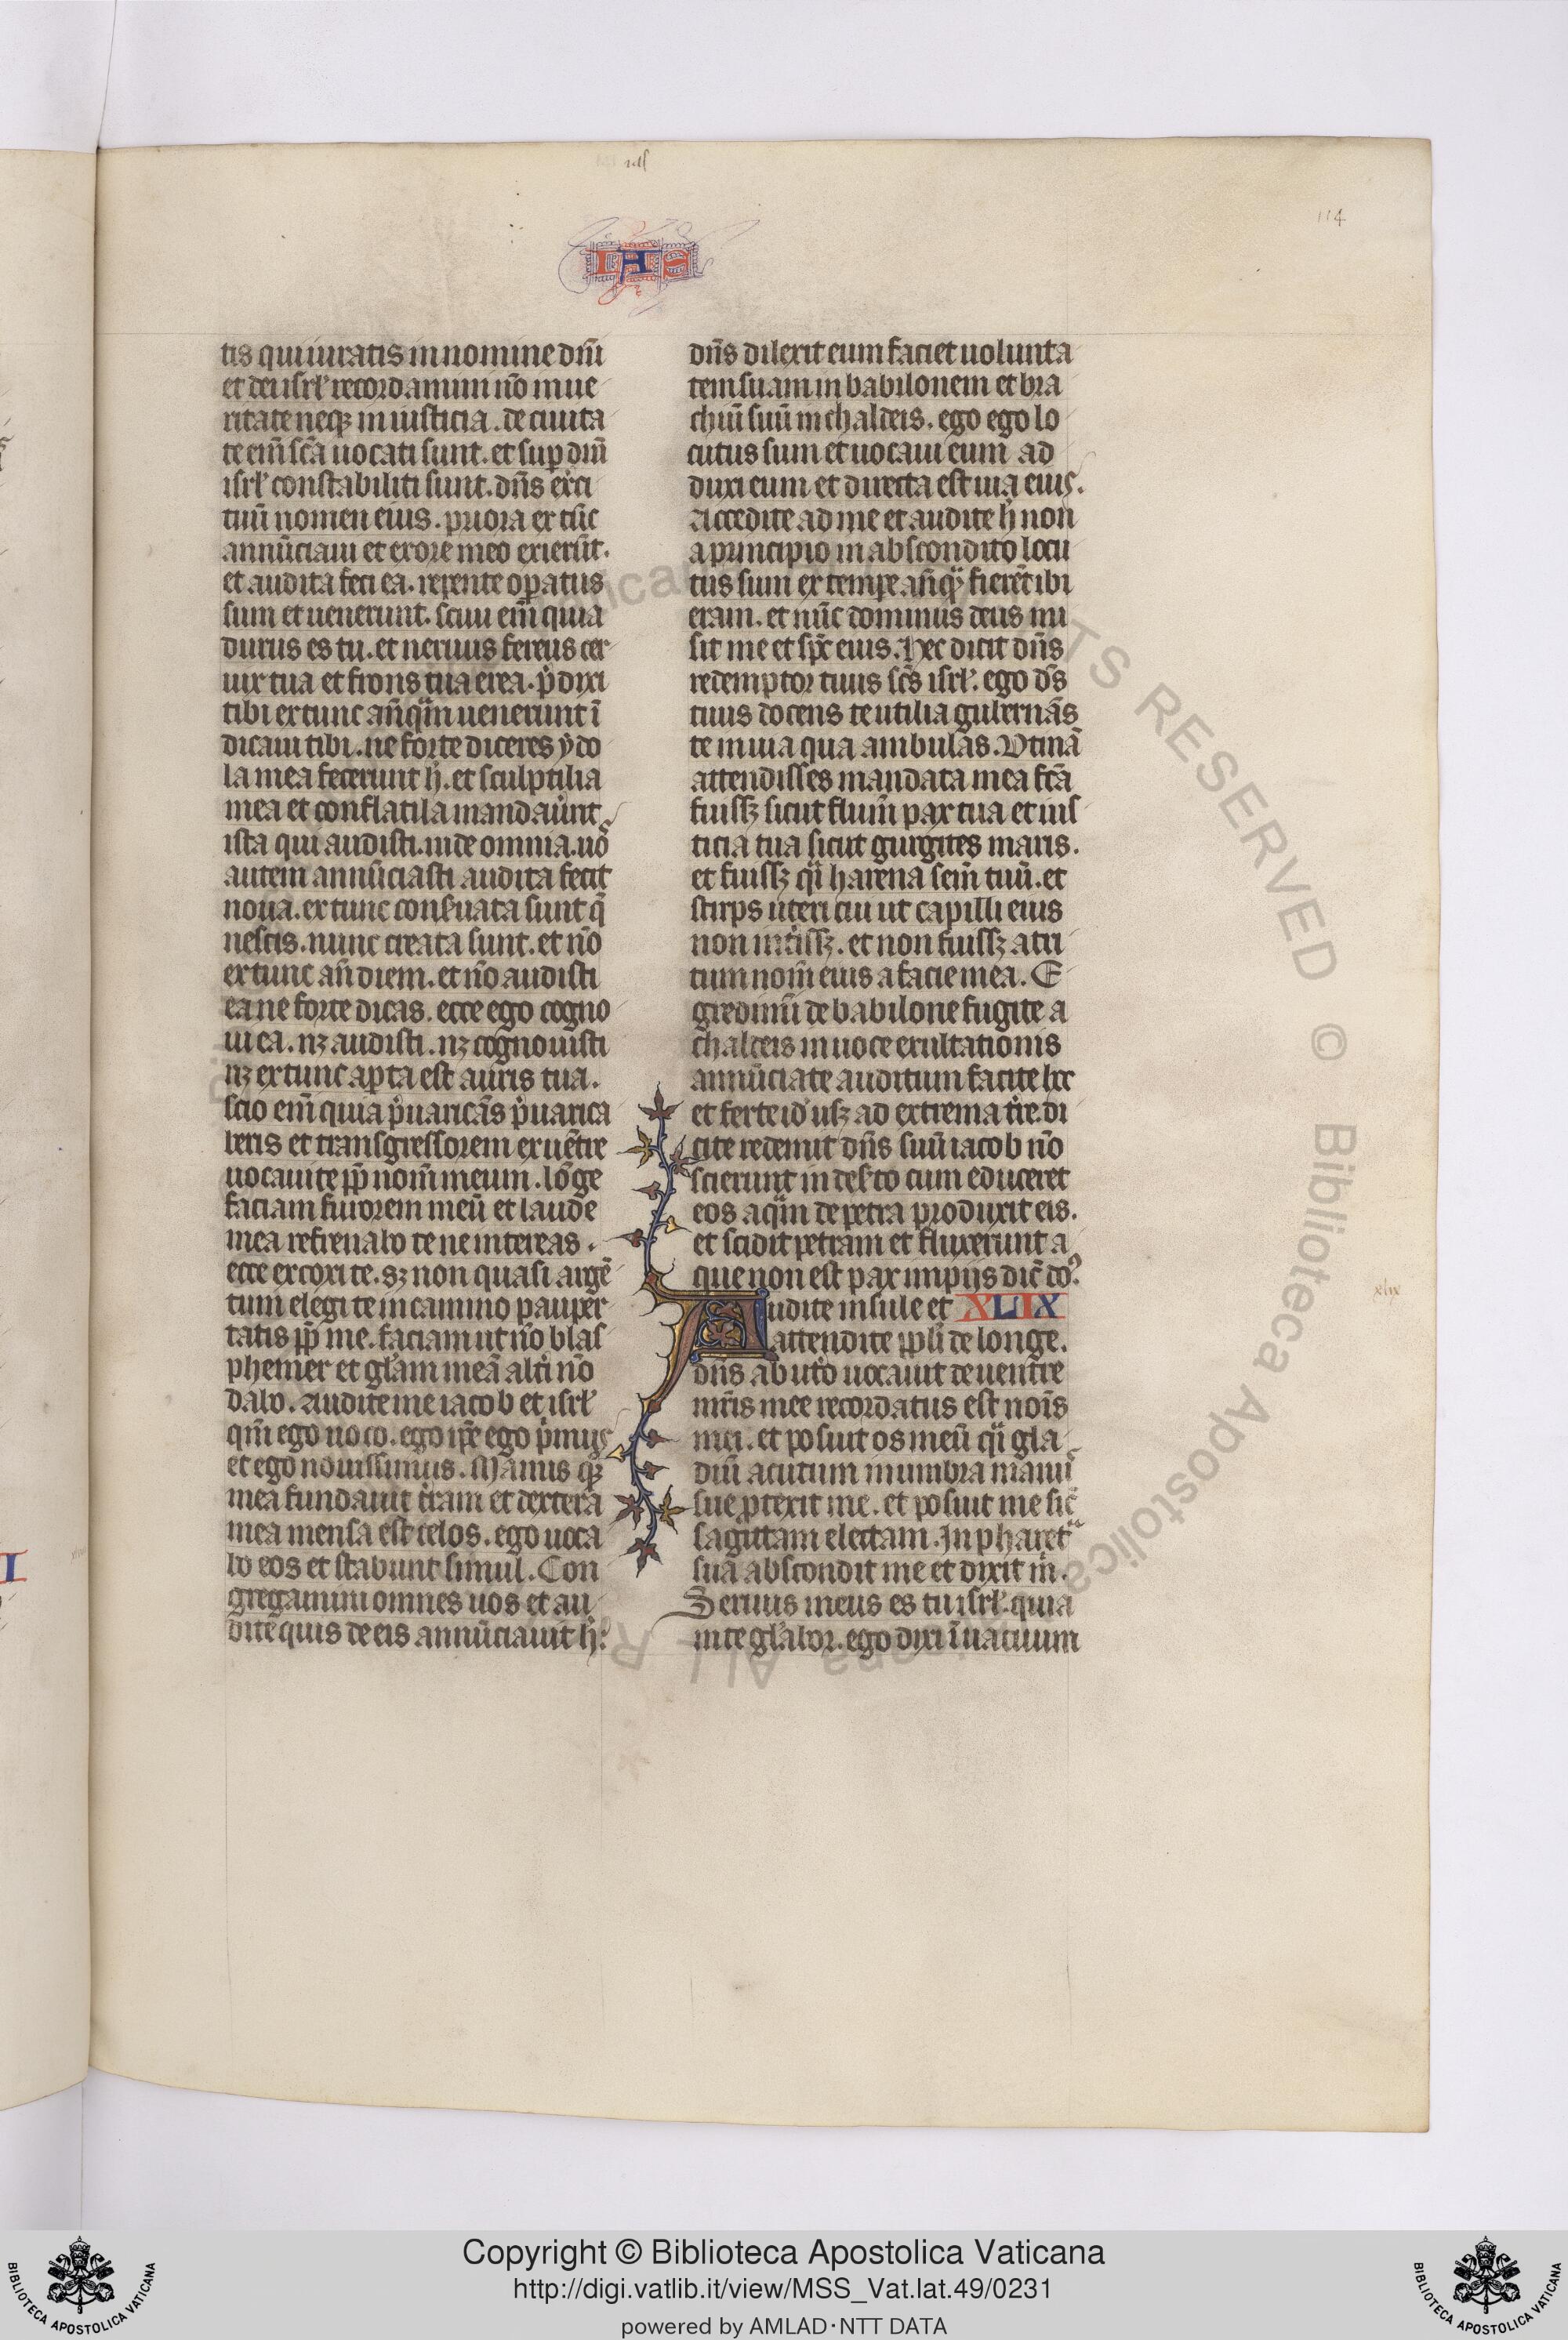 114
IAS
tis qui iuratis in nomine dñi
et dei isrł recordamini nõ in ue
ritate neqꝫ in iusticia. de ciuita
te em̃ sc̃a uocati sunt. et sup dñm
isrł constabiliti sunt. dñs ex̾ci
tuũ nomen eius. priora ex tũc
annũciaui et ex ore meo exierũt.
et audita feci ea. repente opatus
sum et uenerunt. sciui em̃ quia
durus es tu. et neruus ferreus cer
uix tua et frons tua erea. p̾dixi
tibi ex tunc añqᷓm uenerunt ĩ
dicaui tibi. ne forte diceres ydo
la mea fecerunt h̾. et sculptilia
mea et conflatila mandaũnt
ista qui audisti. uide omnia. uõ
autem annũciasti audita feci t
noua. ex tunc conseruata sunt q̃
nescis. nunc creata sunt. et nõ
ex tunc añ diem. et nõ audisti
ea ne forte dicas. ecce ego cogno
ui ea. nꝫ audisti. nꝫ cognouisti
nꝫ ex tunc apta est auris tua.
scio em̃ quia p̾uaricãs p̾uarica
beris et transgressorem ex uẽtre
uocaui te ꝓp̃ nom̃ meum. lõge
faciam furorem meũ et laude
mea refrenabo te ne intereas.
ecce excoxi te. sꝫ non quasi argẽ
tum elegi te in camino pauper
tatis ꝓp̃ me. faciam ut nõ blas
phemer et gľam meã alt̾i nõ
dabo. Audi me iacob et isrł
qm̃ ego uoco. ego ip̃e ego p̾mus
et ego nouissimus. Manus qꝫ
mea fundauit t̾ram et dextera
mea mensa est celos. ego uoca
bo eos et stabunt simul. Con
gregamini omnes uos et au
dite quis de eis annũciauit h̾.
dñs dilexit eum faciet uolunta
tem suam in babilonem et bra
chiũ suũ in chaldeis. ego ego lo
cutus sum et uocaui eum ad
duxi eum et directa est uia eius.
Accedite ad me et audite h̾ non
a principio in abscondito locu
tus sum ex tempe añqᷓ fierẽt ibi
eram. et nũc dominus deus mi
sit me et sp̃c eius. Hec dicit dñs
redemptor tuus sc̃s isrł. ego dñs
tuus docens te utilia gubernãs
te in uia qua ambulas. Utinã
attendisses mandata mea fc̃a
fuissꝫ sicut flum̃ pax tua et ius
ticia tua sicut gurgites maris.
et fuissꝫ qᷓi harena sem̃ tuũ. et
stirps uteri tui ut capilli eius
non int̾issꝫ. et non fuissꝫ attri
tum nom̃ eius a facie mea. E
gredimĩ de babilone fugite a
chaldeis in uoce exultationis
annũciate auditum facite hoc
et ferte id̾ usqꝫ ad extrema t̾re. di
cite redemit dñs suũ iacob nõ
scierunt in des̾to cum educeret
eos aqᷓm de petra produxit eis.
et scidit petram et fluxerunt a
que non est pax impijs dic̃ doꝰ.
Audite insule et XLIX
attendite ppl̾i de longe.
dñs ab ut̾o uocauit de uentre
mr̃is mee recordatus est noĩs
mei. et posuit os meũ qᷓi gla
diũ acutum in umbra manu
sue ptexit me. et posuit me sic̃
sagittam electam. In pharetᷓ
sua abscondit me et dixit m̃.
Seruus meus es tu isrł. quia
in te gľabor. ego dixi ĩ uacuum
xlix
RESERVED © Biblioteca Apostolica
Copyright © Biblioteca Apostolica Vaticana
http://digi.vatlib.it/view/MSS_Vat.lat.49/0231
powered by AMLAD·NTT DATA
BIBLIOTECA APOSTOLICA VATICANA
BIBLIOTECA APOSTOLICA VATICANA